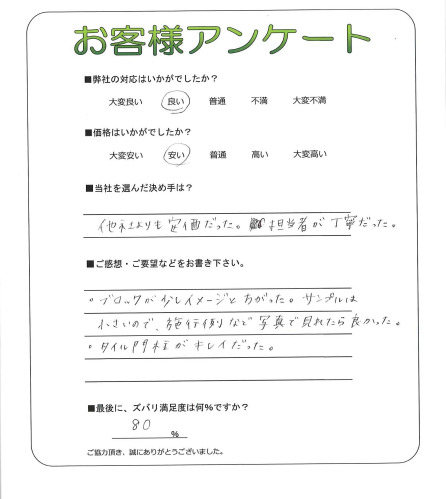 お客様アンケート
■弊社の対応はいかがでしたか？
大変良い 良い 普通 不満 大変不満
■価格はいかがでしたか？
大変安い 安い 普通 高い 大変高い
■当社を選んだ決め手は？
他社よりも安価だった。担当者が丁寧だった。
■ご感想・ご要望などをお書き下さい。
・ブロックが少しイメージとちがった。サンプルは
小さいので、施行例など写真で見れたら良かった。
・タイル門柱がキレイだった。
■最後に、ズバリ満足度は何％ですか？
80 ％
ご協力頂き、誠にありがとうございました。